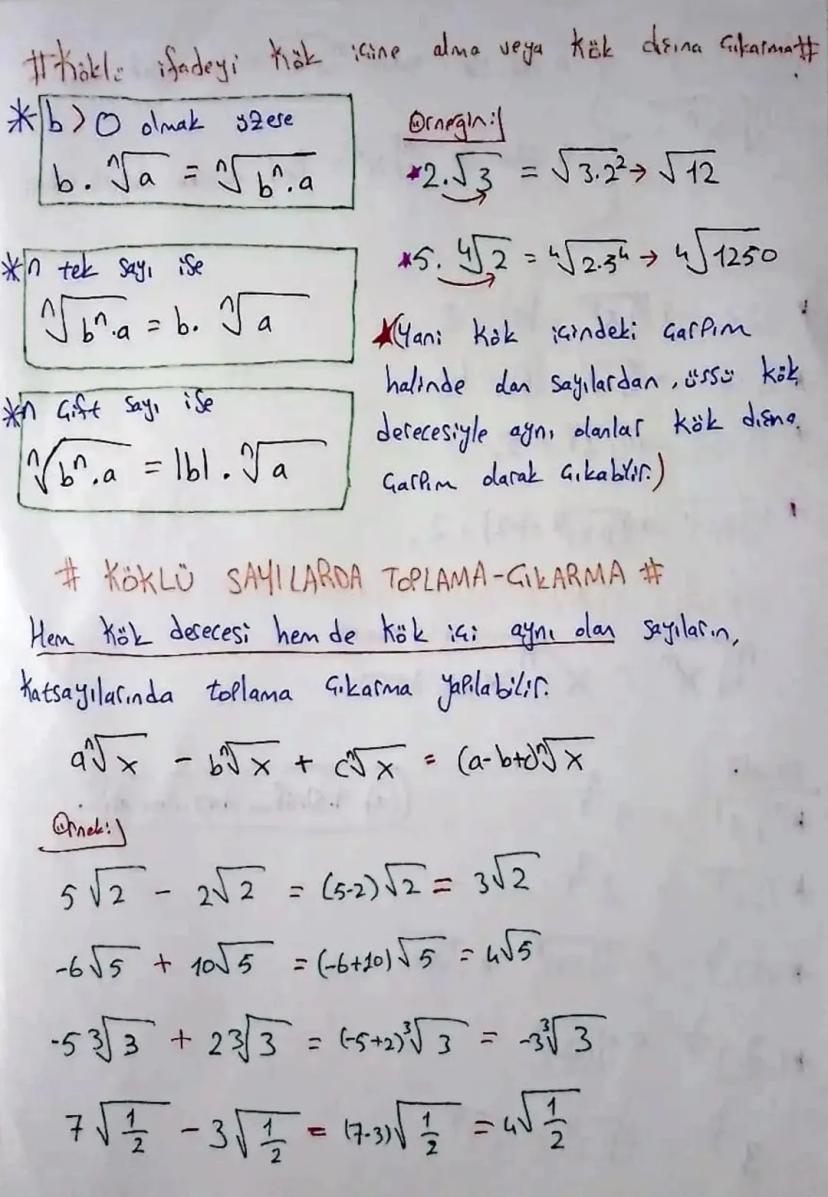 #Köklü ifadeyi kök içine alma veya kök dışına çıkarma#
*b>0 olmak üzere
b. ⁿ√a = ⁿ√bⁿ.a
*n tek sayı ise
ⁿ√bⁿ.a = b. ⁿ√a
*n çift sayı ise
ⁿ√bⁿ.a = |b|. ⁿ√a
Örneğin:
*2.√3 = √3.2² → √12
*5. ⁴√2 = ⁴√2.5⁴ → ⁴√1250
★(Yani kök içindeki çarpım
halinde olan sayılardan, üssü kök
derecesiyle aynı olanlar kök dışına
çarpım olarak çıkabilir.)
# KÖKLÜ SAYILARDA TOPLAMA-ÇIKARMA #
Hem kök derecesi hem de kök içi aynı olan sayıların,
katsayılarında toplama çıkarma yapılabilir.
aⁿ√x - bⁿ√x + cⁿ√x = (a-b+c)ⁿ√x
Örnek:
5√2 - 2√2 = (5-2)√2 = 3√2
-6√5 + 10√5 = (-6+10)√5 = 4√5
-5³√3 + 2³√3 = (-5+2)³√3 = -3³√3
7√1/2 - 3√1/2 = (7-3)√1/2 = 4√1/2